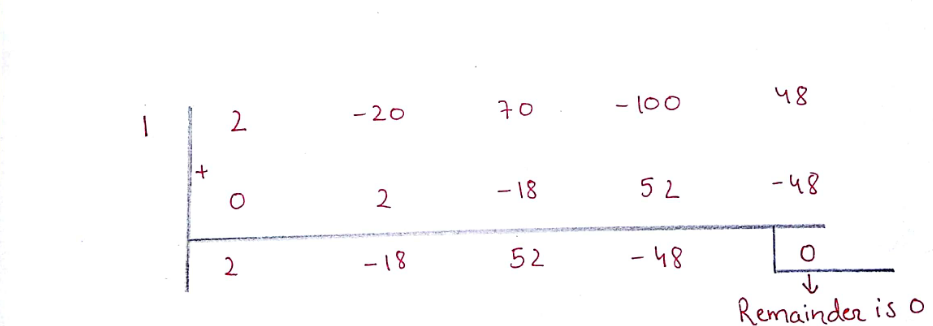 1 2 -20 70 -100 48
+
0 2 -18 52 -48
2 -18 52 -48 0
↓
Remainder is 0